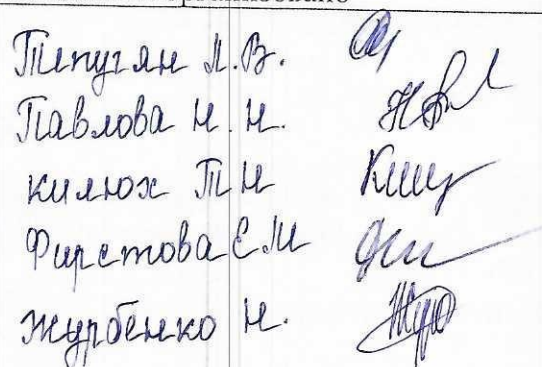 Тепугян Л.В.
Павлова Н.Н.
Килюх Т Н
Фирстова Е.М
Журбенко Н.